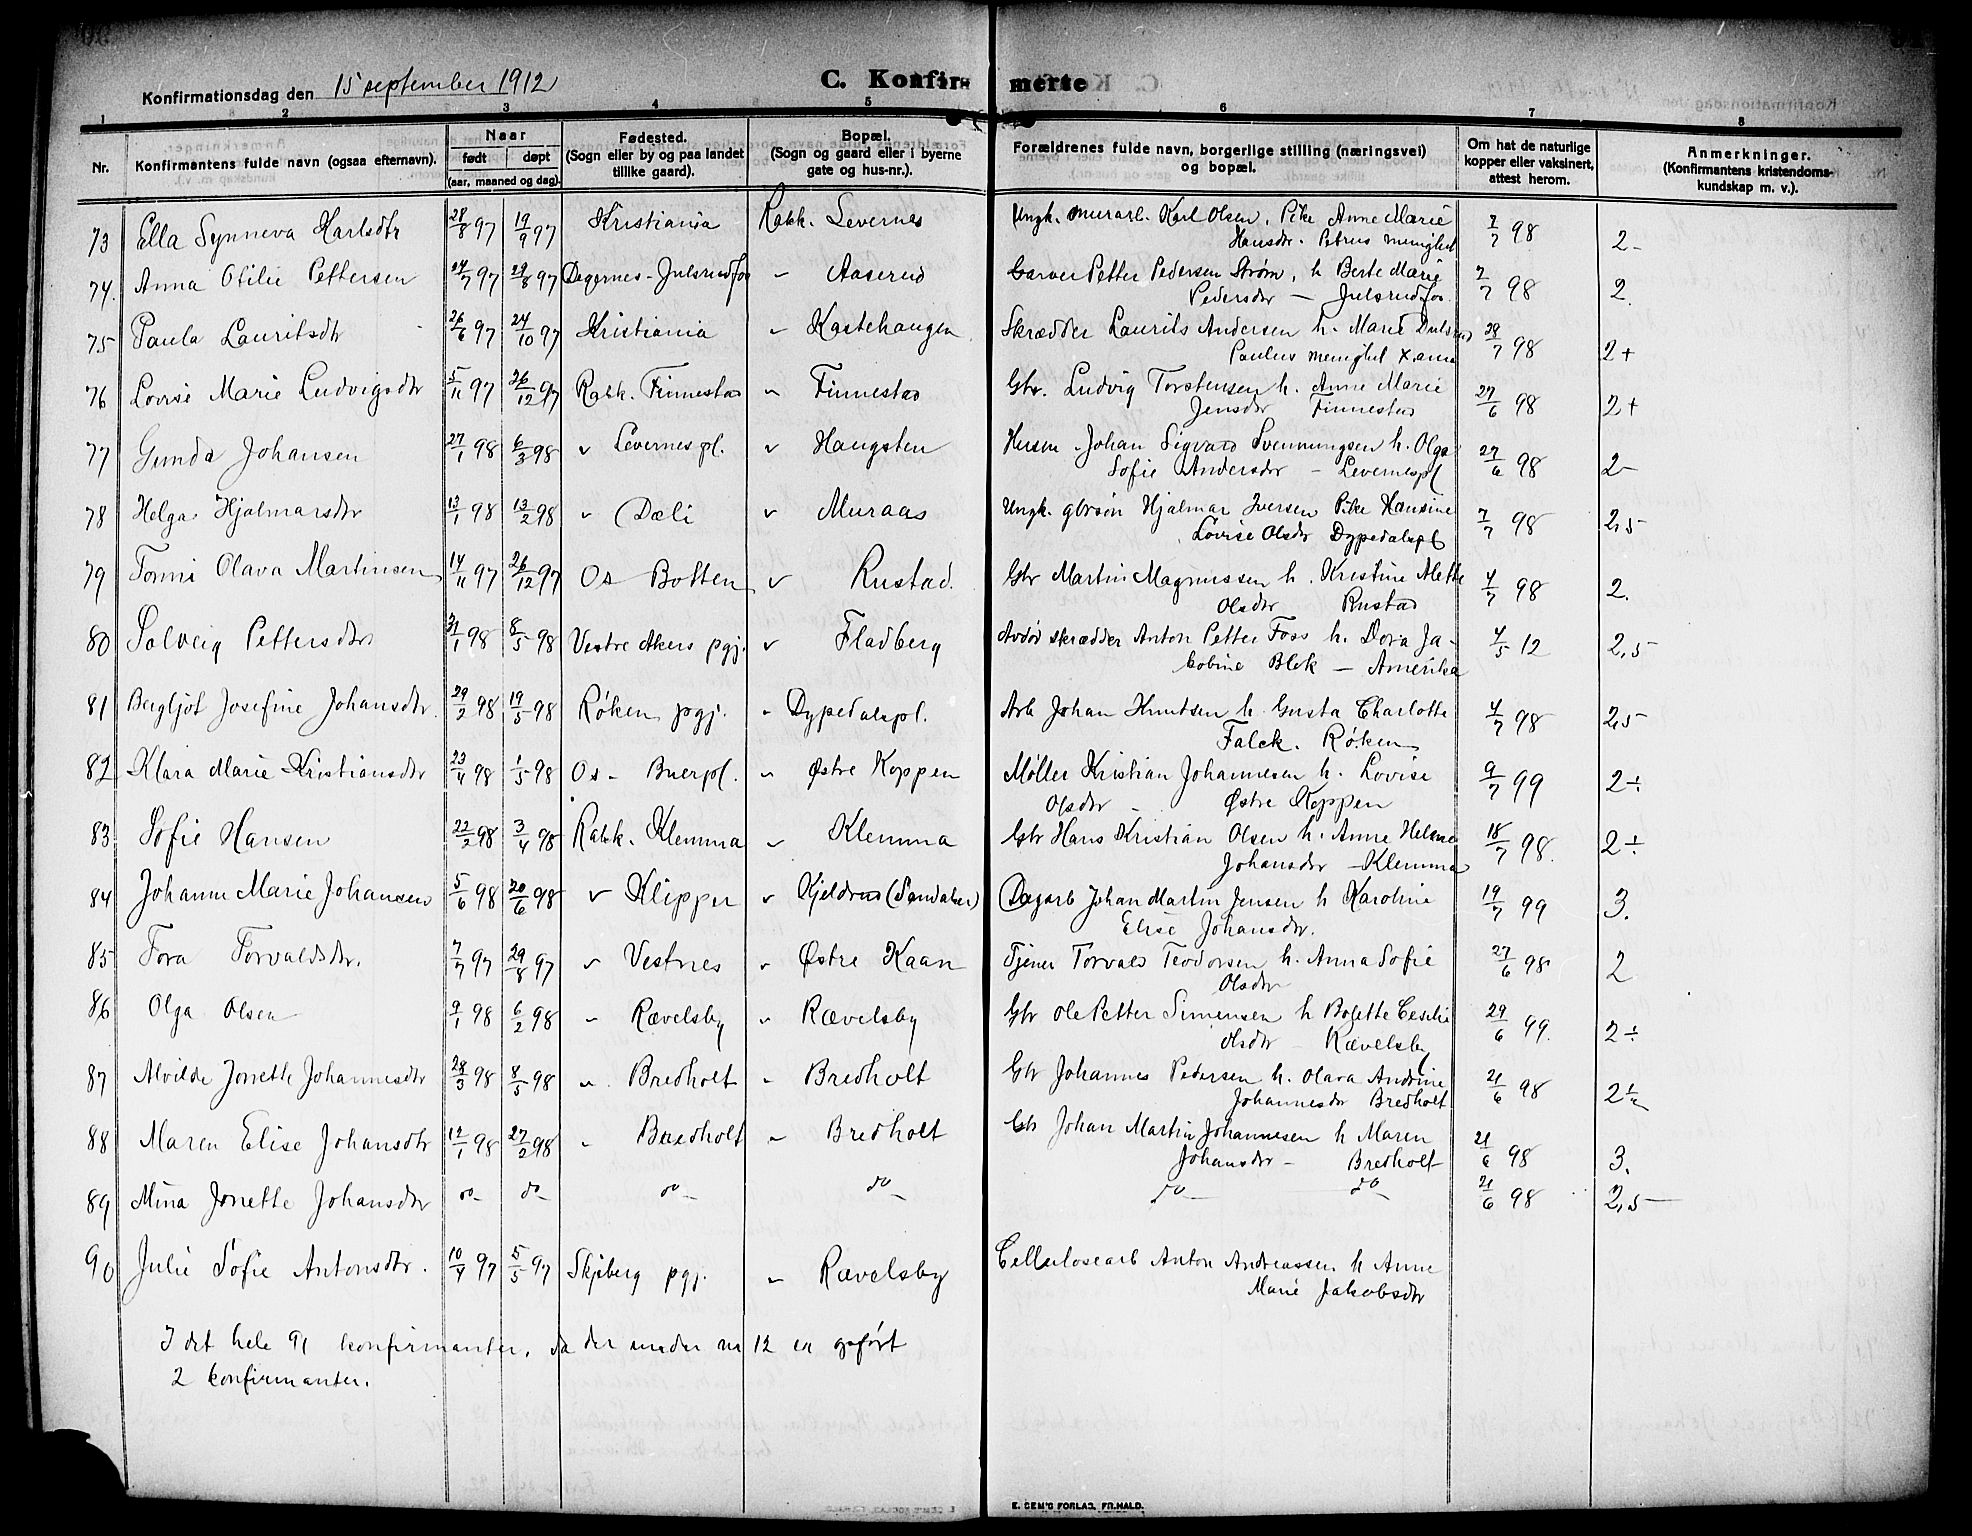 Konfirmationsdag den 15 september 1912
C. Konfir- merte
1 2 3 4 5 6 7 8
Nr. Konfirmantens fulde navn (ogsaa efternavn). Naar født døpt (aar, maaned og dag). Fødested. (Sogn eller by og paa landet tillike gaard). Bopæl. (Sogn og gaard eller i byerne gate og hus-nr.). Forældrenes fulde navn, borgerlige stilling (næringsvei) og bopæl. Om hat de naturlige kopper eller vaksinert, attest herom. Anmerkninger. (Konfirmantens kristendoms- kundskap m. v.).
73 Ella Synneva Karlsdtr 28/8 97 19/9 97 Kristiania Rakk. Levernes Ungk. murarb. Karl Olsen, Pike Anne Marie 7/7 98 2-
Hansdtr. Petrus menighet
74. Anna Otilie Pettersen 24/7 97 29/8 97 Degernes - Julsrudfos " Aaserud Garver Petter Pedersen Strøm, h Berte Marie 7/7 98 2.
Pedersdtr — Julsrudfos.
75 Paula Lauritsdtr 26/6 97 24/10 97 Kristiania " Kastehaugen Skrædder Laurits Andersen h. Marie 28/7 98 2+
Paulus menighet X.ania
76 Lovise Marie Ludvigsdtr 5/11 97 26/12 97 Rakk. Finnestad " Finnestad Gbr. Ludvig Torstensen h. Anne Marie 27/6 98 2+
Jensdtr Finnestad
77 Gunda Johansen 27/1 98 6/3 98 " Levernespl. " Haugsten Husm. Johan Sigvard Svenningsen h. Olga 27/6 98 2-
Sofie Andersdtr - Levernespl
78 Helga Hjalmarsdtr 13/1 98 13/2 98 " Dæli " Muraas Ungk. gbrsøn Hjalmar Iversen Pike Hansine 7/7 98 2,5
Lovise Olsdtr Dypedalspl
79 Tonni Olava Martinsen 14/11 97 26/12 97 Os Botten " Rustad. Gbr Martin Magnussen h. Kristine Alette 4/7 98 2.
Olsdtr Rustad
80 Solveig Pettersdtr 31/1 98 8/5 98 Vestre Akers pgj. " Fladberg Avdød skrædder Anton Petter Foss h. Dora Ja- 4/5 12 2,5
kobine Blek — Amerika
81 Bergljot Josefine Johansdtr. 29/2 98 19/5 98 Røken pgj. " Dypedalspl. Arb Johan Knutsen h. Gusta Charlotte 4/7 98 2,5
Falck. Røken
82 Klara Marie Kristiansdtr 23/4 98 1/5 98 Os - Buerpl. " Østre Koppen Møller Kristian Johannesen h. Lovise 9/7 99 2÷
Olsdtr - Østre Koppen
83 Sofie Hansen 22/2 98 3/4 98 Rakk. Klemma " Klemma Gbr Hans Kristian Olsen h. Anne Helene 18/7 98. 2÷
Johansdtr - Klemma
84 Johanne Marie Johansen 5/6 98 20/6 98 " Klipper " Kjeldrud (Søndalen) Dagarb Johan Martin Jensen h Karoline 19/7 99 3.
Elise Johansdtr.
85 Tora Torvaldsdtr. 7/7 97 29/8 97 " Vestnes " Østre Kaan Tjener Torvald Teodorsen h. Anna Sofie 27/6 98 2
Olsdtr
86 Olga Olsen 9/1 98 6/2 98 " Rævelsby " Rævelsby Gbr Ole Petter Simensen h Bolette Cecilie 29/6 99. 2÷
Olsdtr - Rævelsby
87 Alvilde Jonette Johannesdtr 28/3 98 8/5 98 " Bredholt " Bredholt Gbr Johannes Pedersen h. Olava Andrine 21/6 98 2÷
Johannesdtr Bredholt
88 Maren Elise Johansdtr 12/1 98 27/2 98 " Bredholt " Bredholt Gbr Johan Martin Johannesen h Maren 21/6 98 3.
Johansdtr - Bredholt
89 Mina Jonette Johansdtr do- do- do- do- do- do- 21/6 98 2,5-
90 Julie Sofie Antonsdtr. 10/4 97 5/5 97 Skjeberg pgj. " Rævelsby Cellulosearb Anton Andreassen h Anne
Marie Jakobsdtr
I det hele 91 konfirmanter, da der under nr 12 er opført
2 konfirmanter.
E. SEM'S FORLAG, FR.HALD.